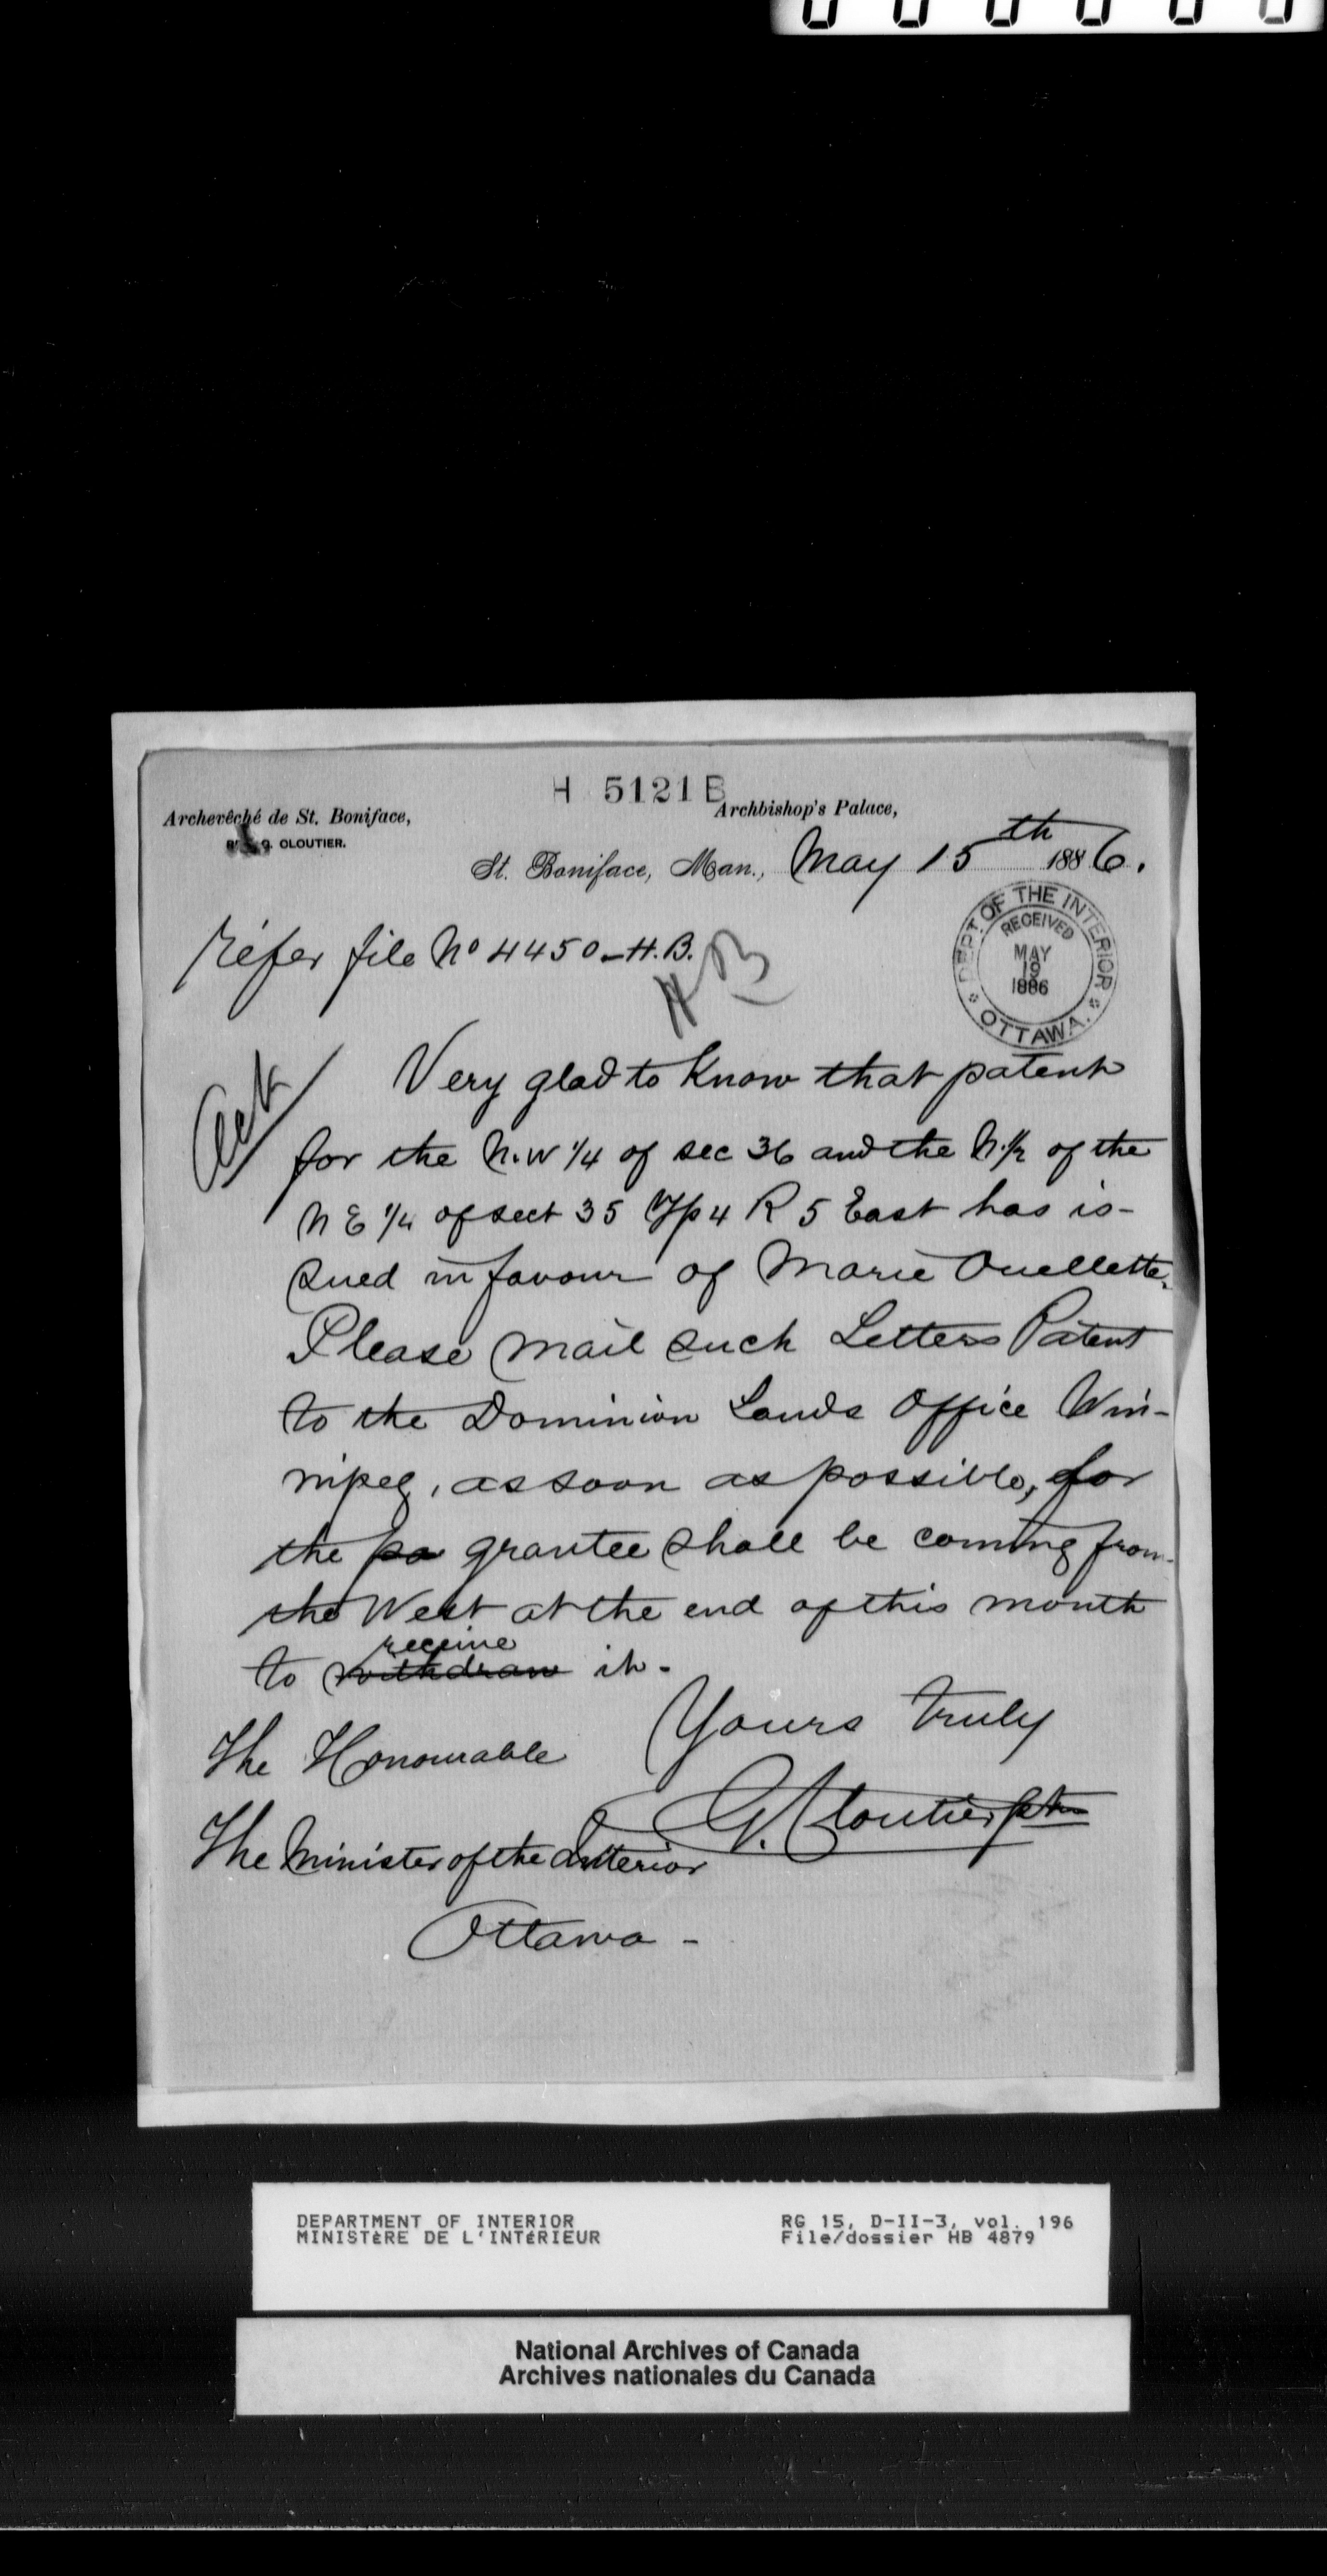 H 5121 B
Archevêché de St. Boniface,
G. CLOUTIER.
Archbishop's Palace,
St. Boniface, Man., May 15th 1886.
DEPT. OF THE INTERIOR
RECEIVED
MAY
19
1886
OTTAWA.
Réfer file No 4450-H.B.
HB
Ack
Very glad to Know that patent
for the N.W 1/4 of sec 36 and the N.1/2 of the
N E 1/4 of sect 35 Tp 4 R 5 East has is-
sued in favour of Marie Ouellette.
Please mail such Letters Patent
to the Dominion Lands Office Win-
nipeg, as soon as possible, for
the pa grantee shall be coming from
the West at the end of this month
receive
to withdraw it.
Yours truly
The Honourable
G. Cloutier ptre
The Minister of the Interior
Ottawa -
DEPARTMENT OF INTERIOR
MINISTÈRE DE L'INTÉRIEUR
RG 15, D-II-3, vol. 196
File/dossier HB 4879
National Archives of Canada
Archives nationales du Canada